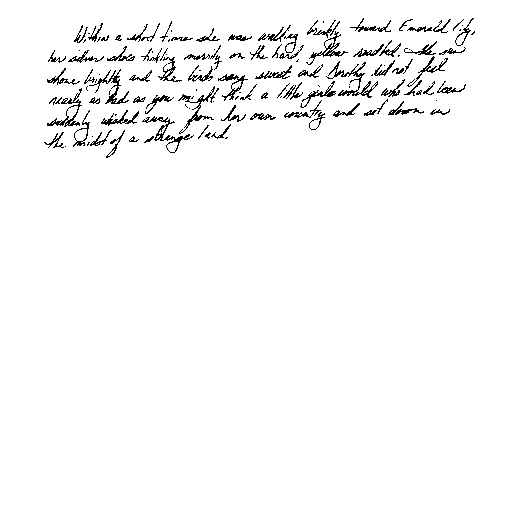 Within a short time she was walking briskly toward Emerald City,
her silver shoes tinkling merrily on the hard, yellow roadbed. The sun
shone brightly and the birds sang sweet and Dorothy did not feel
nearly as bad as you might think a little girl would who had been
suddenly whisked away from her own country and set down in
the midst of a strange land.